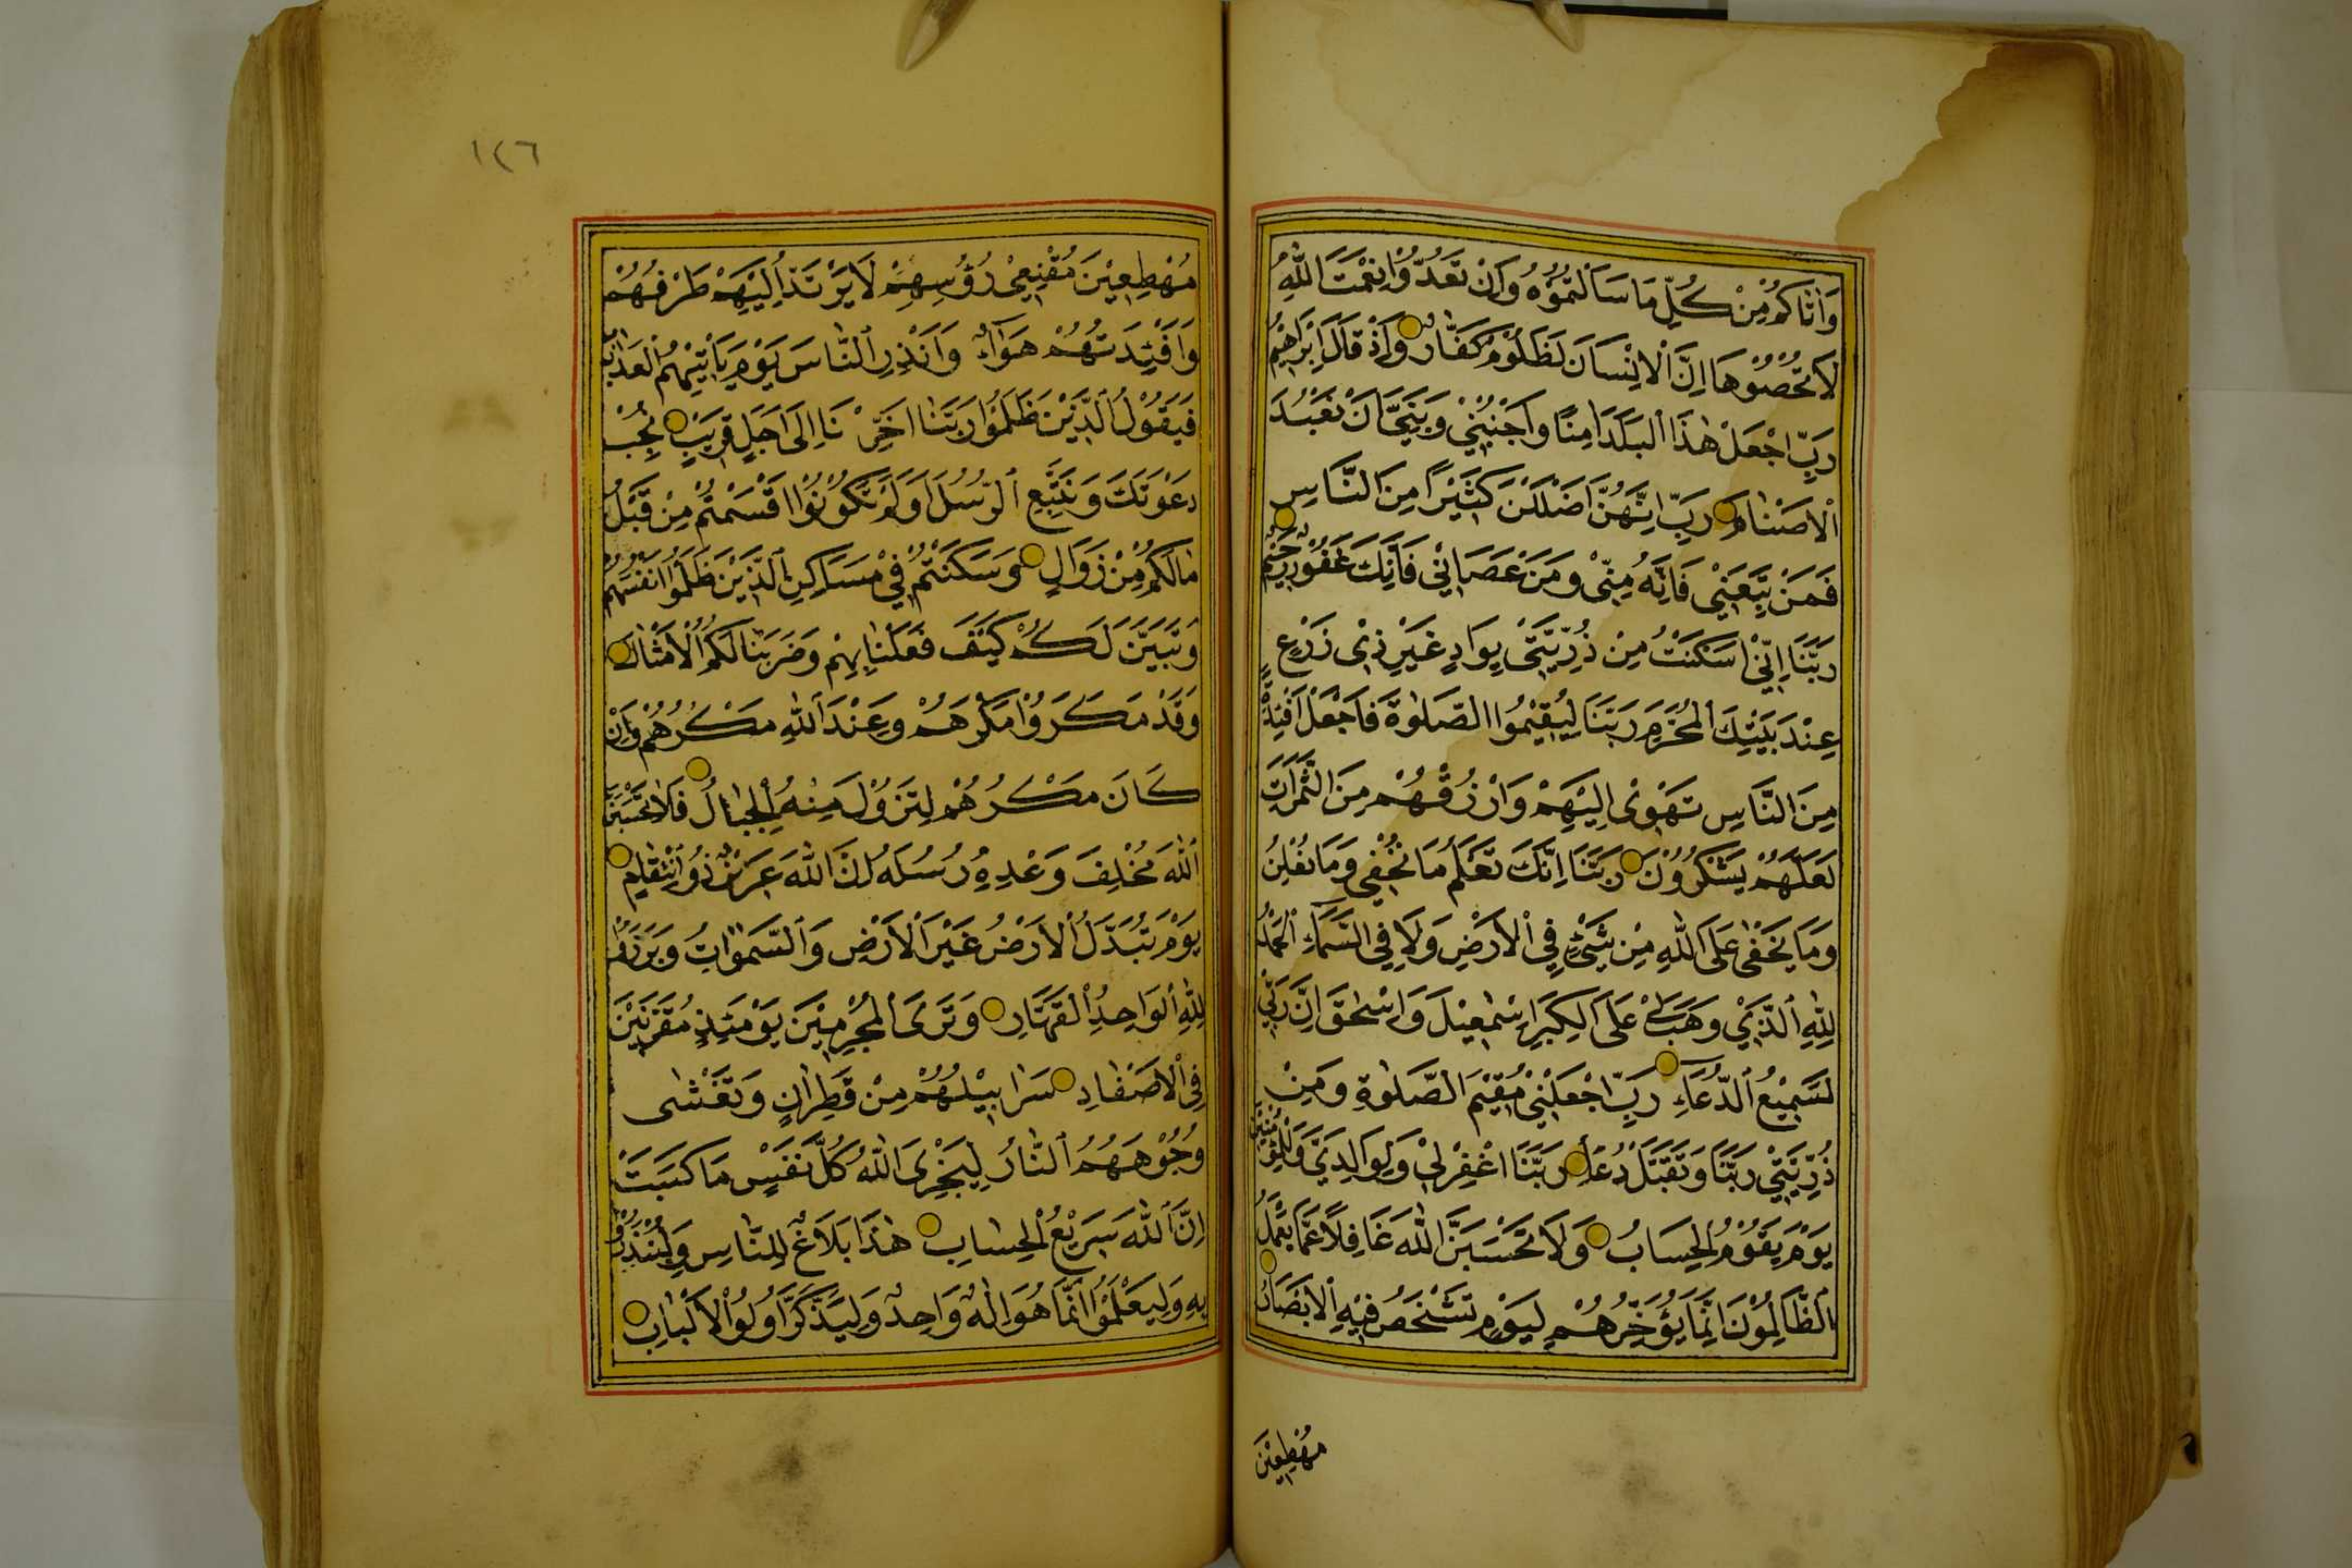 وَاٰتَاكُمْ مِنْ كُلِّ مَا سَاَلْتُمُوْهُ وَاِنْ تَعُدُّوْا نِعْمَتَ اللّٰهِ
لَا تُحْصُوْهَا اِنَّ الْاِنْسَانَ لَظَلُوْمٌ كَفَّارٌ وَاِذْ قَالَ اِبْرَاهِيْمُ
رَبِّ اجْعَلْ هٰذَا الْبَلَدَ اٰمِنًا وَاجْنُبْنِيْ وَبَنِيَّ اَنْ نَعْبُدَ
الْاَصْنَامَ رَبِّ اِنَّهُنَّ اَضْلَلْنَ كَثِيْرًا مِنَ النَّاسِ
فَمَنْ تَبِعَنِيْ فَاِنَّهُ مِنِّيْ وَمَنْ عَصَانِيْ فَاِنَّكَ غَفُوْرٌ رَحِيْمٌ
رَبَّنَا اِنِّيْ اَسْكَنْتُ مِنْ ذُرِّيَّتِيْ بِوَادٍ غَيْرِ ذِيْ زَرْعٍ
عِنْدَ بَيْتِكَ الْمُحَرَّمِ رَبَّنَا لِيُقِيْمُوا الصَّلٰوةَ فَاجْعَلْ اَفْئِدَةً
مِنَ النَّاسِ تَهْوِيْ اِلَيْهِمْ وَارْزُقْهُمْ مِنَ الثَّمَرَاتِ
لَعَلَّهُمْ يَشْكُرُوْنَ رَبَّنَا اِنَّكَ تَعْلَمُ مَا نُخْفِيْ وَمَا نُعْلِنُ
وَمَا يَخْفٰى عَلَى اللّٰهِ مِنْ شَيْءٍ فِي الْاَرْضِ وَلَا فِي السَّمَاءِ اَلْحَمْدُ
لِلّٰهِ الَّذِيْ وَهَبَ لِيْ عَلَى الْكِبَرِ اِسْمٰعِيْلَ وَاِسْحٰقَ اِنَّ رَبِّيْ
لَسَمِيْعُ الدُّعَاءِ رَبِّ اجْعَلْنِيْ مُقِيْمَ الصَّلٰوةِ وَمِنْ
ذُرِّيَّتِيْ رَبَّنَا وَتَقَبَّلْ دُعَاءِ رَبَّنَا اغْفِرْ لِيْ وَلِوَالِدَيَّ وَلِلْمُؤْمِنِيْنَ
يَوْمَ يَقُوْمُ الْحِسَابُ وَلَا تَحْسَبَنَّ اللّٰهَ غَافِلًا عَمَّا يَعْمَلُ
الظَّالِمُوْنَ اِنَّمَا يُؤَخِّرُهُمْ لِيَوْمٍ تَشْخَصُ فِيْهِ الْاَبْصَارُ
مُهْطِعِيْنَ
١٢٦
مُهْطِعِيْنَ مُقْنِعِيْ رُؤُسِهِمْ لَا يَرْتَدُّ اِلَيْهِمْ طَرْفُهُمْ
وَاَفْئِدَتُهُمْ هَوَآءٌ وَاَنْذِرِ النَّاسَ يَوْمَ يَاْتِيْهِمُ الْعَذَابُ
فَيَقُوْلُ الَّذِيْنَ ظَلَمُوْا رَبَّنَا اَخِّرْنَا اِلٰى اَجَلٍ قَرِيْبٍ نُجِبْ
دَعْوَتَكَ وَنَتَّبِعِ الرُّسُلَ اَوَلَمْ تَكُوْنُوْا اَقْسَمْتُمْ مِنْ قَبْلُ
مَا لَكُمْ مِنْ زَوَالٍ وَسَكَنْتُمْ فِيْ مَسَاكِنِ الَّذِيْنَ ظَلَمُوْا اَنْفُسَهُمْ
وَتَبَيَّنَ لَكُمْ كَيْفَ فَعَلْنَا بِهِمْ وَضَرَبْنَا لَكُمُ الْاَمْثَالَ
وَقَدْ مَكَرُوْا مَكْرَهُمْ وَعِنْدَ اللّٰهِ مَكْرُهُمْ وَاِنْ
كَانَ مَكْرُهُمْ لِتَزُوْلَ مِنْهُ الْجِبَالُ فَلَا تَحْسَبَنَّ
اللّٰهَ مُخْلِفَ وَعْدِهِ رُسُلَهُ اِنَّ اللّٰهَ عَزِيْزٌ ذُو انْتِقَامٍ
يَوْمَ تُبَدَّلُ الْاَرْضُ غَيْرَ الْاَرْضِ وَالسَّمٰوَاتُ وَبَرَزُوْا
لِلّٰهِ الْوَاحِدِ الْقَهَّارِ وَتَرَى الْمُجْرِمِيْنَ يَوْمَئِذٍ مُقَرَّنِيْنَ
فِي الْاَصْفَادِ سَرَابِيْلُهُمْ مِنْ قَطِرَانٍ وَتَغْشٰى
وُجُوْهَهُمُ النَّارُ لِيَجْزِيَ اللّٰهُ كُلَّ نَفْسٍ مَا كَسَبَتْ
اِنَّ اللّٰهَ سَرِيْعُ الْحِسَابِ هٰذَا بَلَاغٌ لِلنَّاسِ وَلِيُنْذَرُوْا
بِهِ وَلِيَعْلَمُوْا اَنَّمَا هُوَ اِلٰهٌ وَاحِدٌ وَلِيَذَّكَّرَ اُولُوا الْاَلْبَابِ